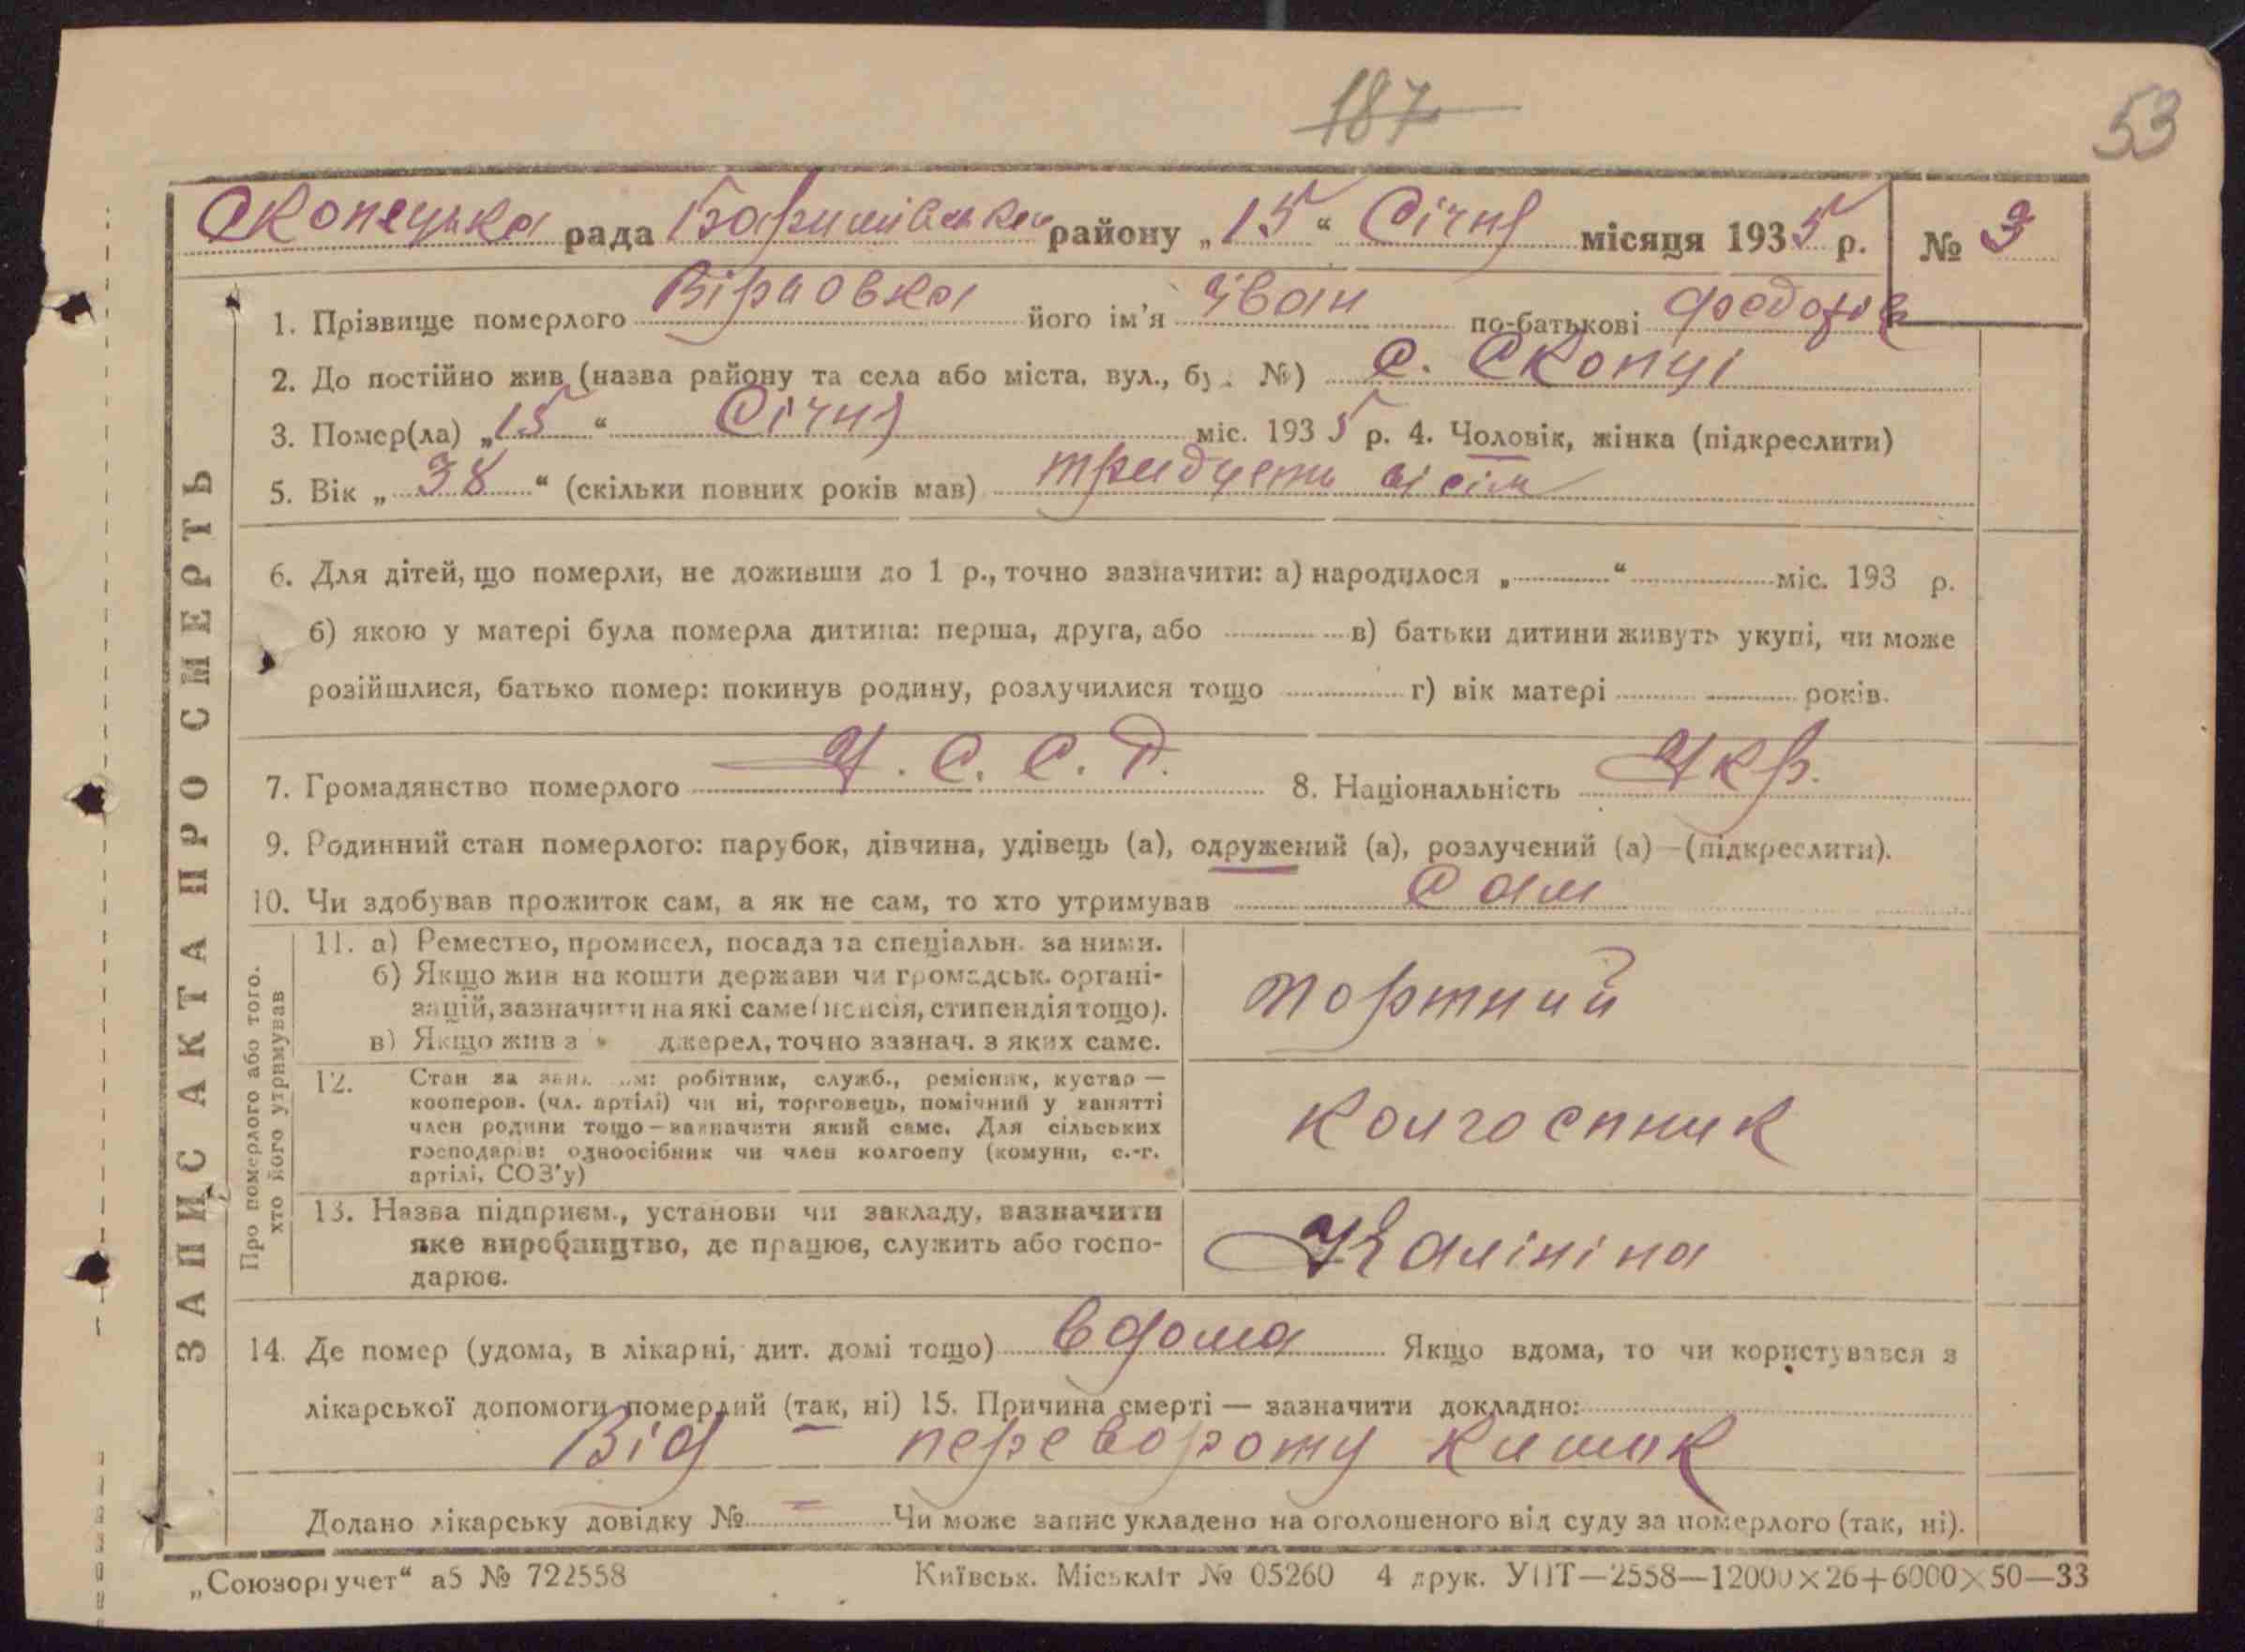 187
53
Скопецька рада Баришівського району „15“ Січня місяця 1935 р. № 3
1. Прізвище померлого Вірповка його ім'я Іван по-батькові Федоров
2. До постійно жив (назва району та села або міста, вул., бу. №) с. Скопці
3. Помер(ла) „15“ Січня міс. 1935 р. 4. Чоловік, жінка (підкреслити)
5. Вік „38“ (скільки повних років мав) тридцять вісім
6. Для дітей, що померли, не доживши до 1 р., точно зазначити: а) народилося „ “ міс. 193 р.
б) якою у матері була померла дитина: перша, друга, або в) батьки дитини живуть укупі, чи може
розійшлися, батько помер: покинув родину, розлучилися тощо г) вік матері років.
7. Громадянство померлого У.С.С.Р. 8. Національність Укр.
9. Родинний стан померлого: парубок, дівчина, удівець (а), одружений (а), розлучений (а)—(підкреслити).
10. Чи здобував прожиток сам, а як не сам, то хто утримував Сам
ЗАПИС АКТА ПРО СМЕРТЬ
Про померлого або того.
хто його утримував
11. а) Ремество, промисел, посада та спеціальн. за ними.
б) Якщо жив на кошти держави чи громадськ. органі-
зацій, зазначити на які саме (пенсія, стипендія тощо).
в) Якщо жив з джерел, точно зазнач. з яких саме.
портний
12. Стан за зан м: робітник, служб., ремісник, кустар —
кооперов. (чл. артілі) чи ні, торговець, помічний у занятті
член родини тощо—зазначити який саме. Для сільських
господарів: одноосібник чи член колгоспу (комуни, с.-г.
артілі, СОЗ'у)
колгоспник
13. Назва підприєм., установи чи закладу, зазначити
яке виробництво, де працює, служить або госпо-
дарює.
Калініна
14. Де помер (удома, в лікарні, дит. домі тощо) вдома Якщо вдома, то чи користувався з
лікарської допомоги померлий (так, ні) 15. Причина смерті — зазначити докладно:
Від перевороту кишик
Додано лікарську довідку № — Чи може запис укладено на оголошеного від суду за померлого (так, ні).
„Союзоргучет“ а5 № 722558 Київськ. Міськліт № 05260 4 друк. УПТ—2558—12000×26+6000×50—33